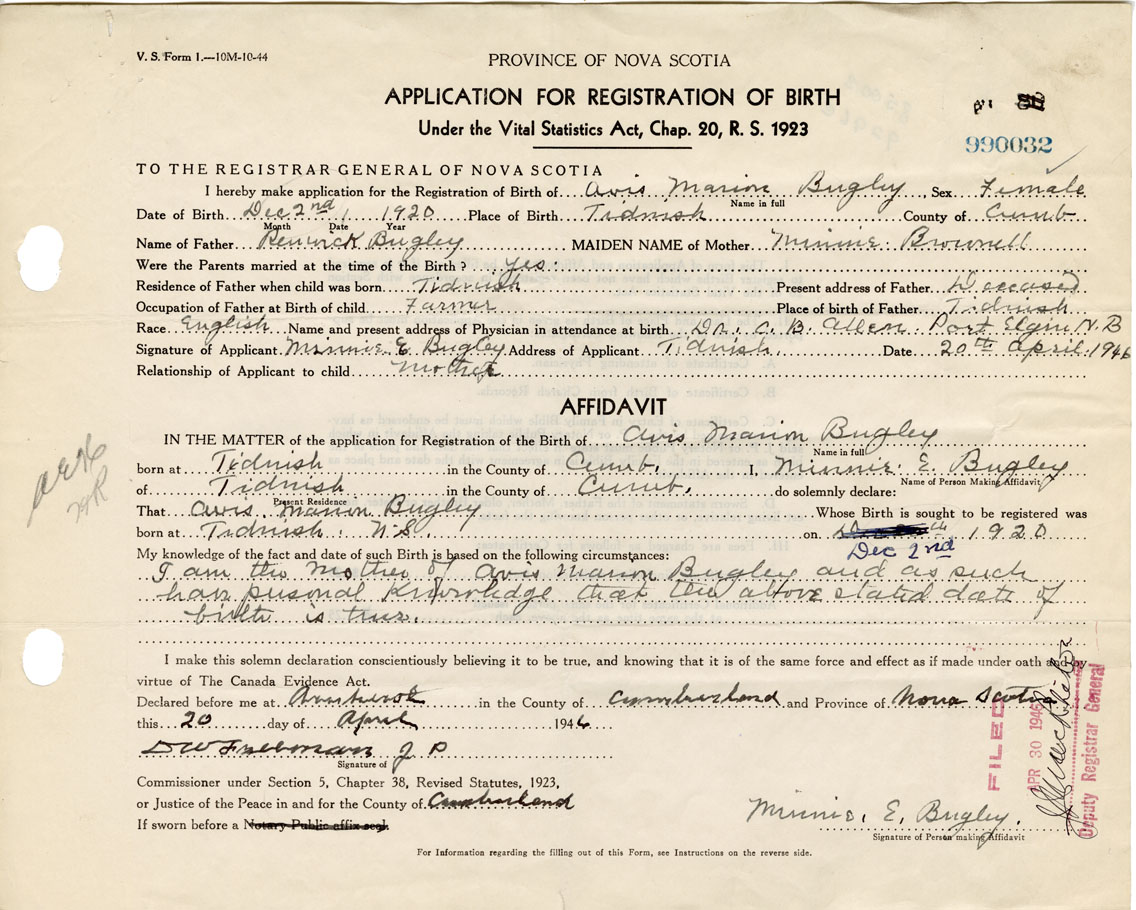 V. S. Form 1.—10M-10-44
PROVINCE OF NOVA SCOTIA
APPLICATION FOR REGISTRATION OF BIRTH
Under the Vital Statistics Act, Chap. 20, R. S. 1923
990032
TO THE REGISTRAR GENERAL OF NOVA SCOTIA
I hereby make application for the Registration of Birth of Avis Marion Bugley, Sex Female
Name in full
Date of Birth Dec 2nd, 1920 Place of Birth Tidnish County of Cumb
Month Date Year
Name of Father Renwick Bugley MAIDEN NAME of Mother Minnie Brownell
Were the Parents married at the time of the Birth? yes.
Residence of Father when child was born Tidnish Present address of Father Deceased
Occupation of Father at Birth of child Farmer Place of birth of Father Tidnish
Race English Name and present address of Physician in attendance at birth Dr. C. B. Allen Port Elgin N.B
Signature of Applicant Minnie E. Bugley Address of Applicant Tidnish. Date 20th April. 1946
Relationship of Applicant to child Mother
AFFIDAVIT
IN THE MATTER of the application for Registration of the Birth of Avis Marion Bugley
Name in full
born at Tidnish in the County of Cumb. I, Minnie. E. Bugley
Name of Person Making Affidavit
of Tidnish in the County of Cumb. do solemnly declare:
Present Residence
That Avis Marion Bugley Whose Birth is sought to be registered was
born at Tidnish. N.S. on th 1920
Dec 2nd
My knowledge of the fact and date of such Birth is based on the following circumstances:
I am the Mother of Avis Marion Bugley and as such
have personal Knowledge that the above stated date of
birth is true.
I make this solemn declaration conscientiously believing it to be true, and knowing that it is of the same force and effect as if made under oath and by
virtue of The Canada Evidence Act.
Declared before me at Amherst in the County of Cumberland and Province of Nova Scotia
this 20 day of April 1946
D W Freeman J P
Signature of
Commissioner under Section 5, Chapter 38, Revised Statutes, 1923,
or Justice of the Peace in and for the County of Cumberland
If sworn before a Notary Public affix seal.
Minnie. E. Bugley.
Signature of Person making Affidavit
For Information regarding the filling out of this Form, see Instructions on the reverse side.
FILED
APR 30 1946
Deputy Registrar General